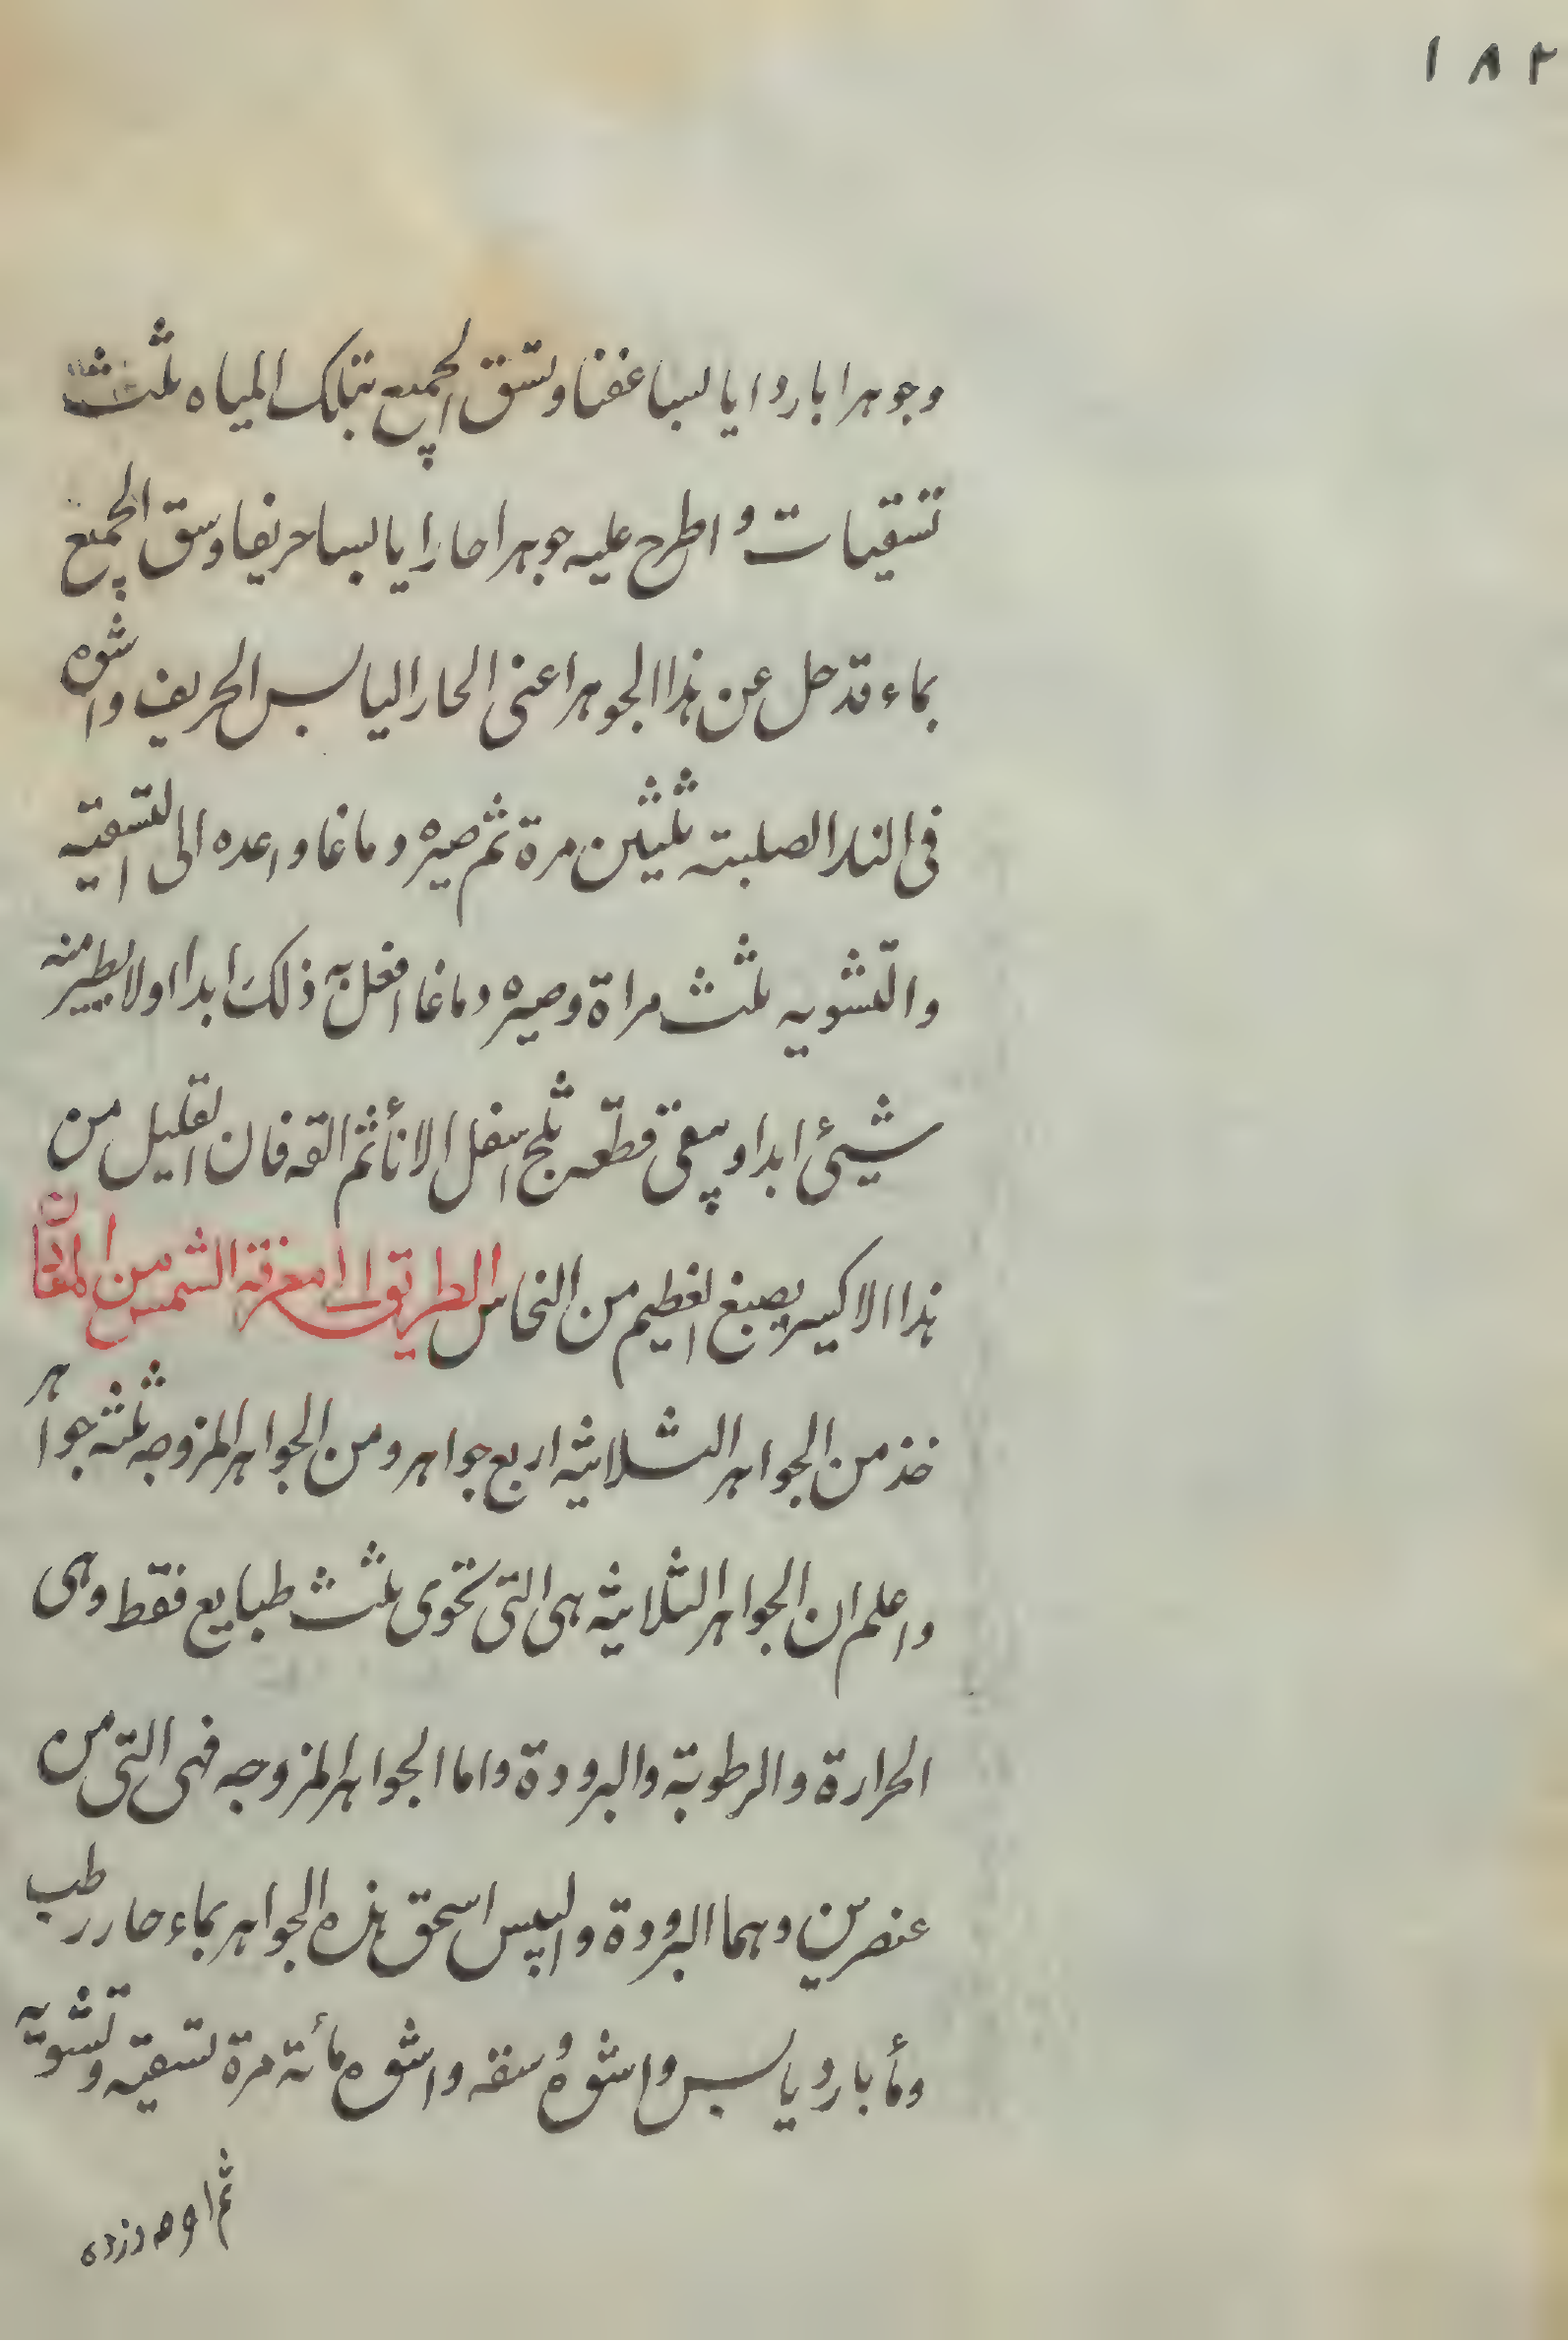 ١٨٢
وجوهرا باردا يابسا عفنا وتسق الجميع بتلك المياه ثلث
تسقيات واطرح عليه جوهرا حارا يابسا حريفا وسق الجميع
بماء قد حل عن هذا الجوهر اعنى الحار اليابس الحريف واشوه
فى النار الصلبته ثلثين مرة ثم صيره دماغا واعده الى التسقيه
والتشويه ثلث مراة وصيره دماغا افعل به ذلك ابدا اولا يطير منه
شيئ ابدا ويبقى قطعه ثلج اسفل الانأ ثم القه فان القليل من
هذا الاكسير يصبغ العظيم من النحاس الطريق الى معرفة الشمس من المقان
خذ من الجواهر الثلاثيه اربع جواهر ومن الجواهر المزوجه ثلثه جواهر
واعلم ان الجواهر الثلاثيه هى التى تحوى ثلث طبايع فقط وهى
الحرارة والرطوبة والبرودة واما الجواهر المزوجه فهى التى من
عنصرين وهما البرودة واليبس اسحق هذه الجواهر بماء حار رطب
ومأ بارد يابس واشوه وسقه واشوه مأئة مرة تسقيه وتشويه
ثم